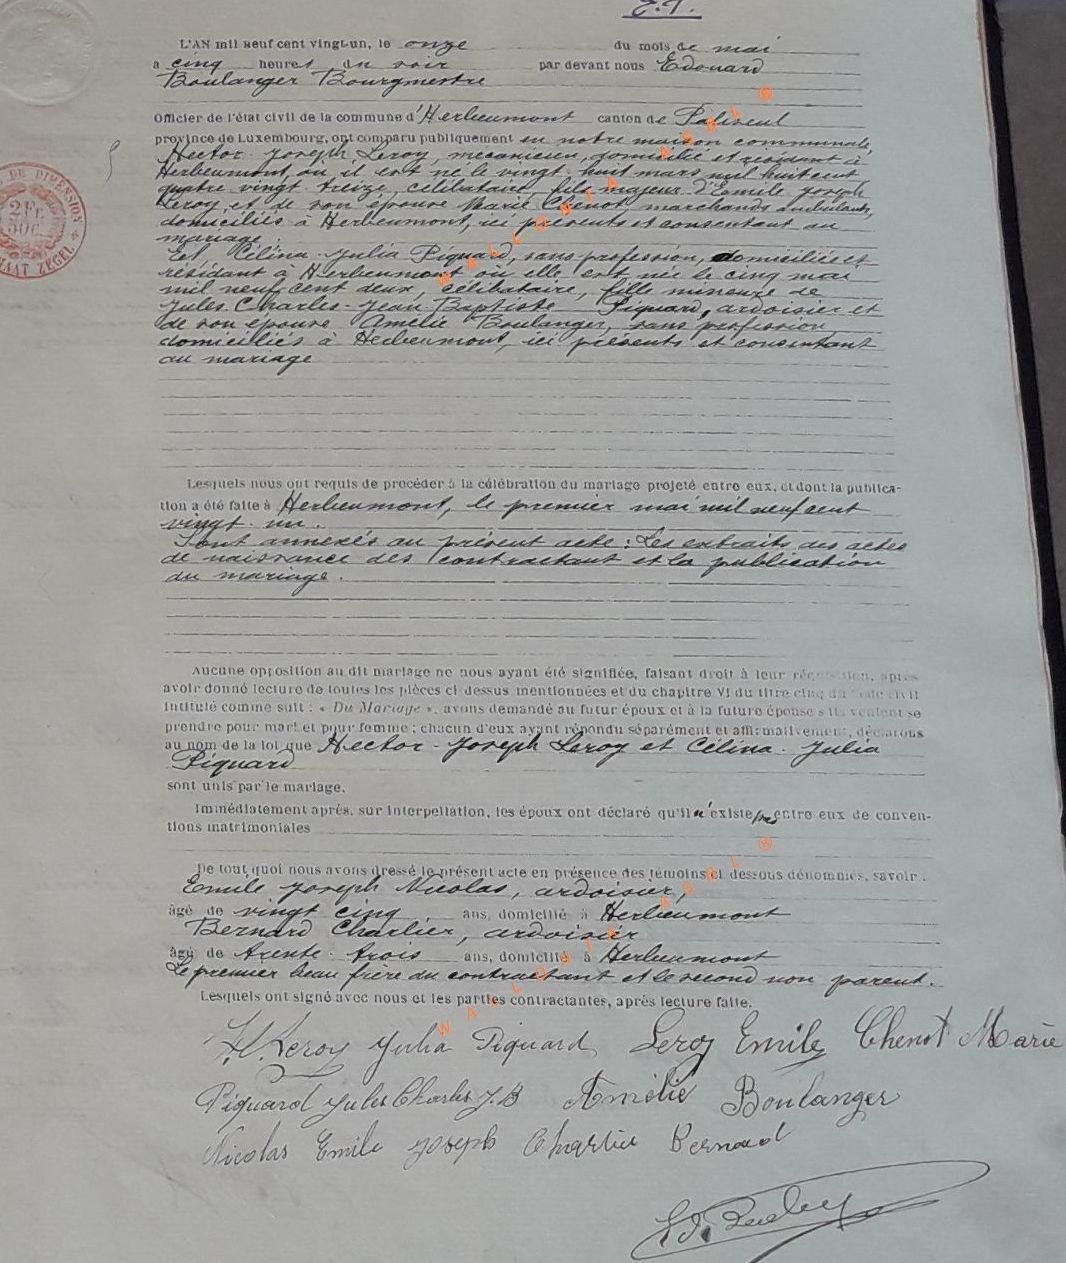 E.P.
L'AN mil neuf cent vingt-un, le onze du mois de mai
a cinq heures du soir par devant nous Edouard
Boulanger Bourgmestre
Officier de l'état civil de la commune d'Herbeumont canton de Paliseul
province de Luxembourg, ont comparu publiquement en notre maison communale,
Hector-Joseph Leroy, mécanicien, domicilié et résidant à
Herbeumont, où il est né le vingt-huit mars mil huit cent
quatre vingt treize, célibataire, fils majeur d'Emile Joseph
Leroy et de son épouse Marie Chenot, marchands ambulants,
domiciliés à Herbeumont, ici présents et consentant au
mariage.
Et Célina-Julia Piquard, sans profession, domiciliée et
résidant à Herbeumont où elle est née le cinq mai
mil neuf cent deux, célibataire, fille mineure de
Jules-Charles-Jean-Baptiste Piquard, ardoisier et
de son épouse Amélie Boulanger, sans profession,
domiciliés à Herbeumont, ici présents et consentant
au mariage
Lesquels nous ont requis de procéder à la célébration du mariage projeté entre eux, et dont la publica-
tion a été faite à Herbeumont, le premier mai mil neuf cent
vingt-un.
Sont annexés au présent acte: Les extraits des actes
de naissance des contractant et la publication
du mariage.
Aucune opposition au dit mariage ne nous ayant été signifiée, faisant droit à leur réquisition, après
avoir donné lecture de toutes les pièces ci dessus mentionnées et du chapitre VI du titre cinq du Code civil
intitulé comme suit : « Du Mariage », avons demandé au futur époux et à la future épouse s'ils veulent se
prendre pour mari et pour femme ; chacun d'eux ayant répondu séparément et affirmativement, déclarons
au nom de la loi que Hector-Joseph Leroy et Célina-Julia
Piquard
sont unis par le mariage.
Immédiatement après, sur interpellation, les époux ont déclaré qu'il n'existe pas entre eux de conven-
tions matrimoniales
De tout quoi nous avons dressé le présent acte en présence des témoins ci dessous dénommés, savoir :
Emile Joseph Nicolas, ardoisier,
âgé de vingt cinq ans, domicilié à Herbeumont
Bernard Charlier, ardoisier
âgé de trente-trois ans, domicilié à Herbeumont
Le premier beau frère du contractant et le second non parent.
Lesquels ont signé avec nous et les parties contractantes, après lecture faite.
H. Leroy Julia Piquard Leroy Emile Chenot Marie
Piquard Jules Charles J.B Amélie Boulanger
Nicolas Emile Joseph Charlier Bernard
WALLONIA ASBL ®
WALLONIA ASBL ®